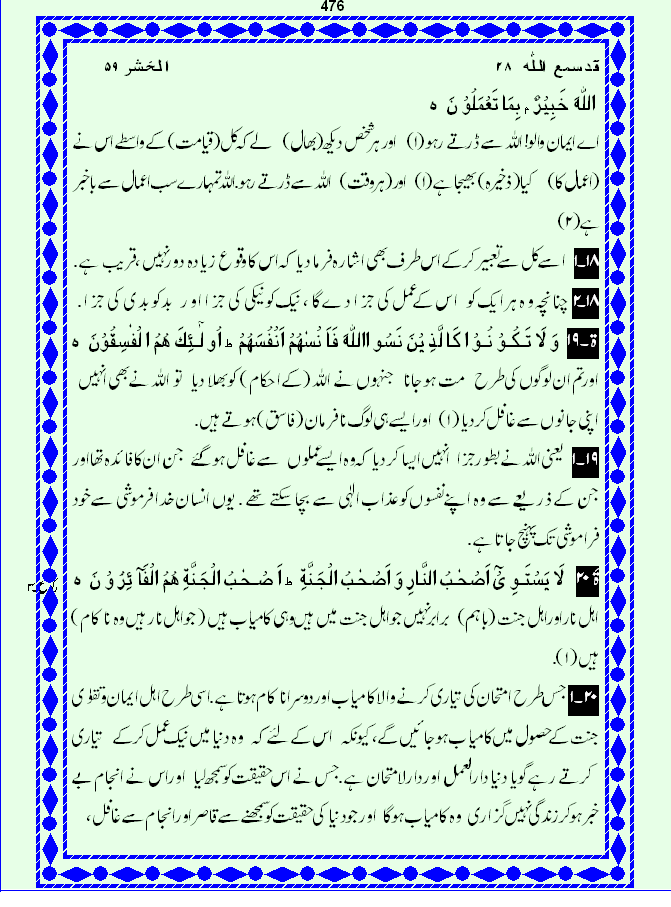 476
قدسمع اللہ ۲۸ الحشر ۵۹
اللّٰهَ خَبِيْرٌۢ بِمَا تَعْمَلُوْنَ ه
اے ایمان والو! اللہ سے ڈرتے رہو(۱) اور ہر شخص دیکھ (بھال) لے کہ کل (قیامت) کے واسطے اس نے
(اعمال کا) کیا (ذخیرہ) بھیجا ہے(۱) اور (ہر وقت) اللہ سے ڈرتے رہو. اللہ تمہارے سب اعمال سے باخبر
ہے(۲)
۱۸۔۱ اسے کل سے تعبیر کرکے اس طرف بھی اشارہ فرما دیا کہ اس کا وقوع زیادہ دور نہیں، قریب ہے.
۱۸۔۲ چنانچہ وہ ہر ایک کو اس کے عمل کی جزا دے گا، نیک کو نیکی کی جزا اور بد کو بدی کی جزا.
ۃ۔۱۹ وَ لَا تَكُوْنُوْا كَالَّذِيْنَ نَسُوا اللّٰهَ فَاَنْسٰهُمْ اَنْفُسَهُمْ ؕ اُولٰٓئِكَ هُمُ الْفٰسِقُوْنَ ه
اور تم ان لوگوں کی طرح مت ہو جانا جنہوں نے اللہ (کے احکام) کو بھلا دیا تو اللہ نے بھی انہیں
اپنی جانوں سے غافل کر دیا (۱) اور ایسے ہی لوگ نافرمان (فاسق) ہوتے ہیں.
۱۹۔۱ یعنی اللہ نے بطور جزا انہیں ایسا کر دیا کہ وہ ایسے عملوں سے غافل ہو گئے جن ان کا فائدہ تھا اور
جن کے ذریعے سے وہ اپنے نفسوں کو عذاب الٰہی سے بچا سکتے تھے. یوں انسان خدا فرموشی سے خود
فراموشی تک پہنچ جاتا ہے.
ۃ۔۲۰ لَا يَسْتَوِىْٓ اَصْحٰبُ النَّارِ وَ اَصْحٰبُ الْجَنَّةِ ؕ اَصْحٰبُ الْجَنَّةِ هُمُ الْفَآئِزُوْنَ ه
اہل نار اور اہل جنت (باہم) برابر نہیں جو اہل جنت میں ہیں وہی کامیاب ہیں (جو اہل نار ہیں وہ ناکام)
ہیں(۱).
۲۰۔۱ جس طرح امتحان کی تیاری کرنے والا کامیاب اور دوسرا ناکام ہوتا ہے. اسی طرح اہل ایمان و تقویٰ
جنت کے حصول میں کامیاب ہو جائیں گے، کیونکہ اس کے لئے کہ وہ دنیا میں نیک عمل کرکے تیاری
کرتے رہے گویا دنیا دارالعمل اور دارلامتحان ہے. جس نے اس حقیقت کو سمجھ لیا اور اس نے انجام بے
خبر ہو کر زندگی نہیں گزاری وہ کامیاب ہوگا اور جو دنیا کی حقیقت کو سمجھنے سے قاصر اور انجام سے غافل،